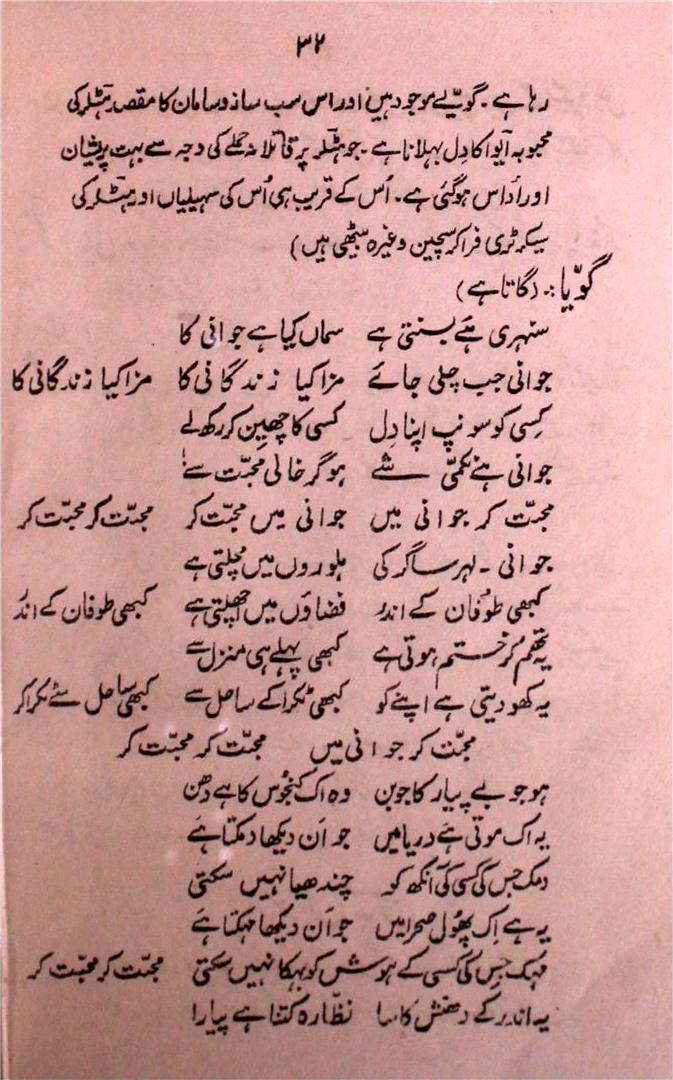 ۳۲
رہا ہے۔ گویّے موجود ہیں اور اس سب ساز و سامان کا مقصد ہٹلر کی
محبوبہ آیوا کا دِل بہلانا ہے۔ جو ہٹلر پر قاتلانہ حملے کی وجہ سے بہت پریشان
اور اُداس ہو گئی ہے۔ اُس کے قریب ہی اُس کی سہیلیاں اور ہٹلر کی
سیکرٹری فراکرسچین وغیرہ بیٹھی ہیں)
گویّا:۔ (گاتا ہے)
سنہری ہَے بسنتی ہے سماں کیا ہے جوانی کا
جوانی جب چلی جائے مزا کیا زندگانی کا مزا کیا زندگانی کا
کِسی کو سونپ اپنا دِل کسی کا چھین کر رکھ لے
جوانی ہَے نکمّی شے ہو گر خالی محبّت سے
محبّت کر جوانی میں جوانی میں محبّت کر محبّت کر محبّت کر
جوانی ۔ لہر ساگر کی ہلوروں میں مچلتی ہے
کبھی طوُفان کے اندر فضاؤں میں اچھلتی ہے کبھی طوفان کے اندر
یہ تھم کر ختم ہوتی ہے کبھی پہلے ہی منزل سے
یہ کھو دیتی ہے اپنے کو کبھی ٹکرا کے ساحل سے کبھی ساحل سے ٹکرا کر
محبّت کر جوانی میں محبّت کر محبّت کر
ہو جو بے پیار کا جوبن وہ اک کنجُوس کا ہے دھن
یہ اک موتی ہَے دریا میں جو اَن دیکھا دمکتا ہَے
دمک جس کی کسی کی آنکھ کو چندھیا نہیں سکتی
یہ ہے اِک پھُول صحرا میں جو اَن دیکھا مہکتا ہَے
مہک جِس کی کسی کے ہوش کو بہکا نہیں سکتی محبّت کر محبّت کر
یہ اندر کے دھنش کا سا نظّارہ کتنا ہے پیارا